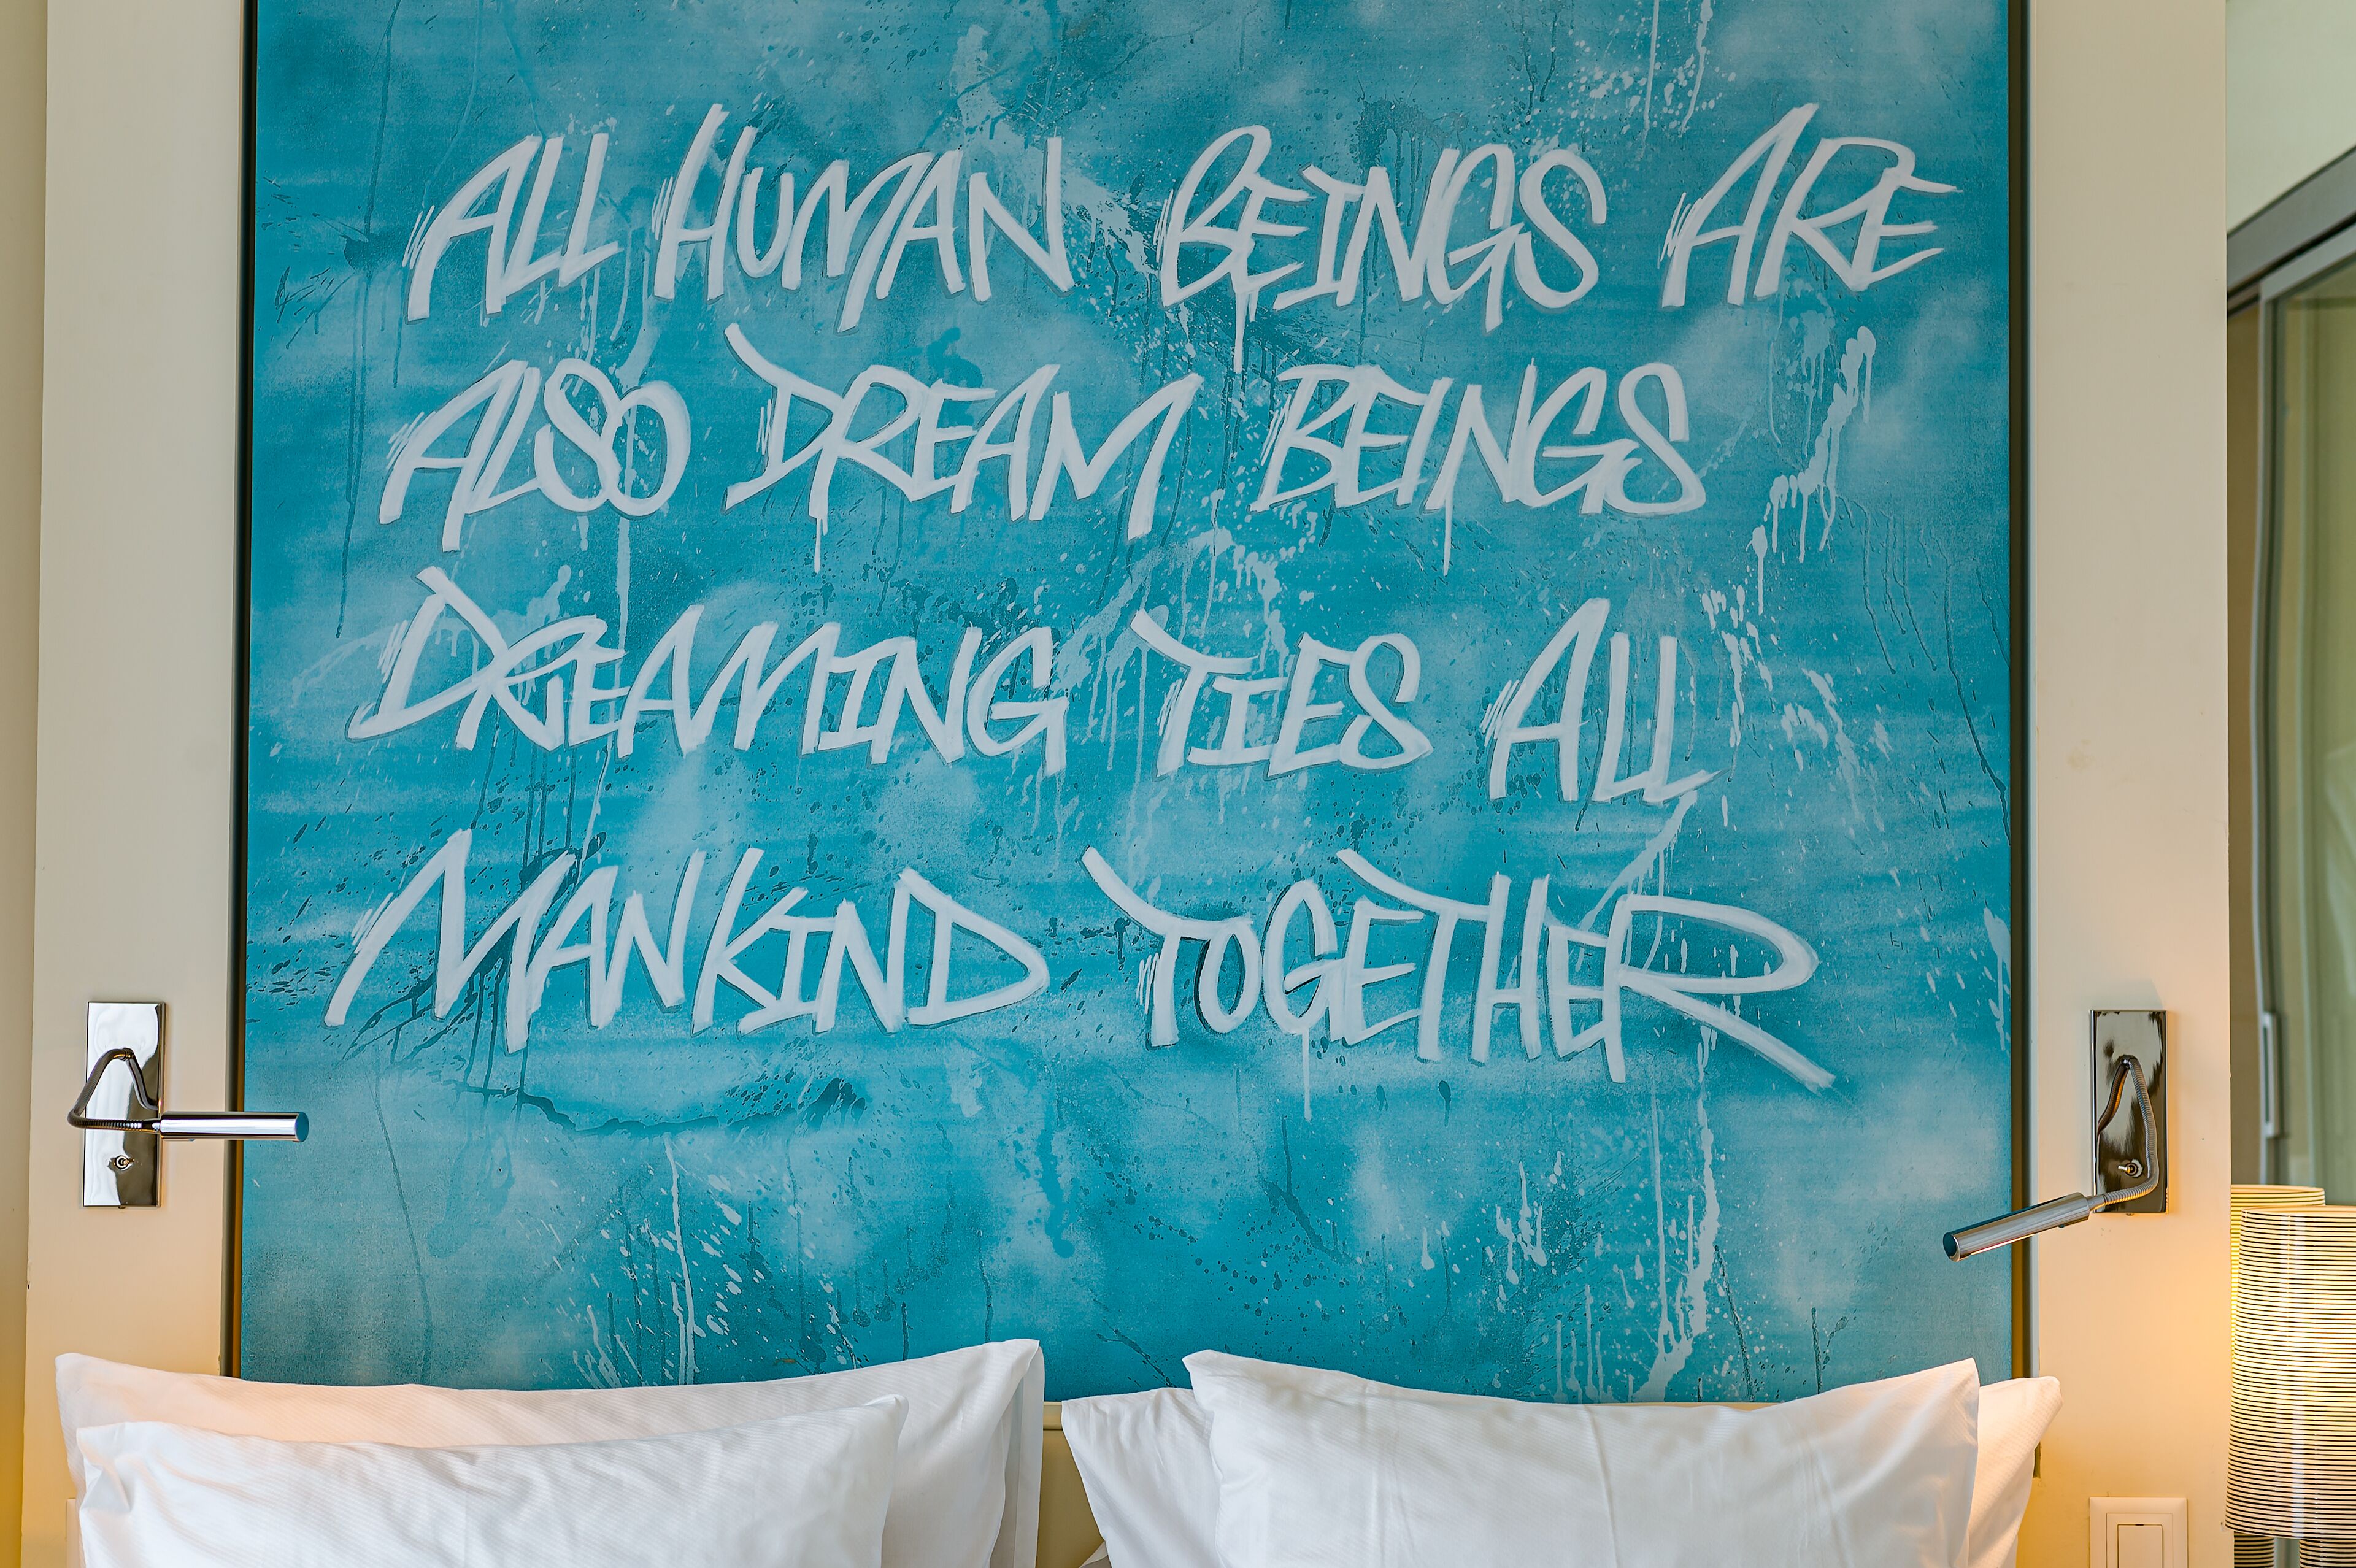 ALL HUMAN BEINGS ARE
ALSO DREAM BEINGS
DREAMING TIES ALL
MANKIND TOGETHER